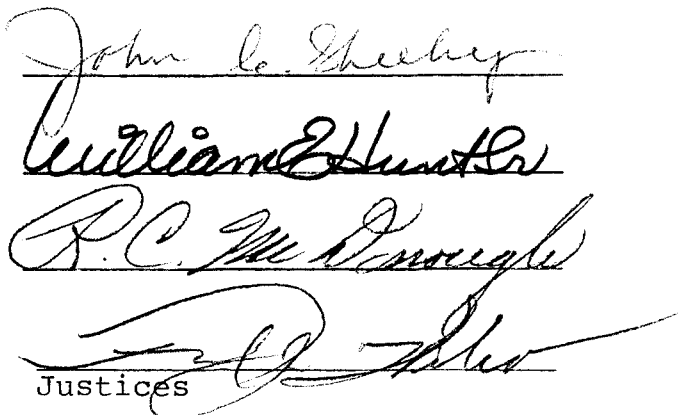 John C. Sheehy
William E Hunt Sr
R. C. McDonough
Justices